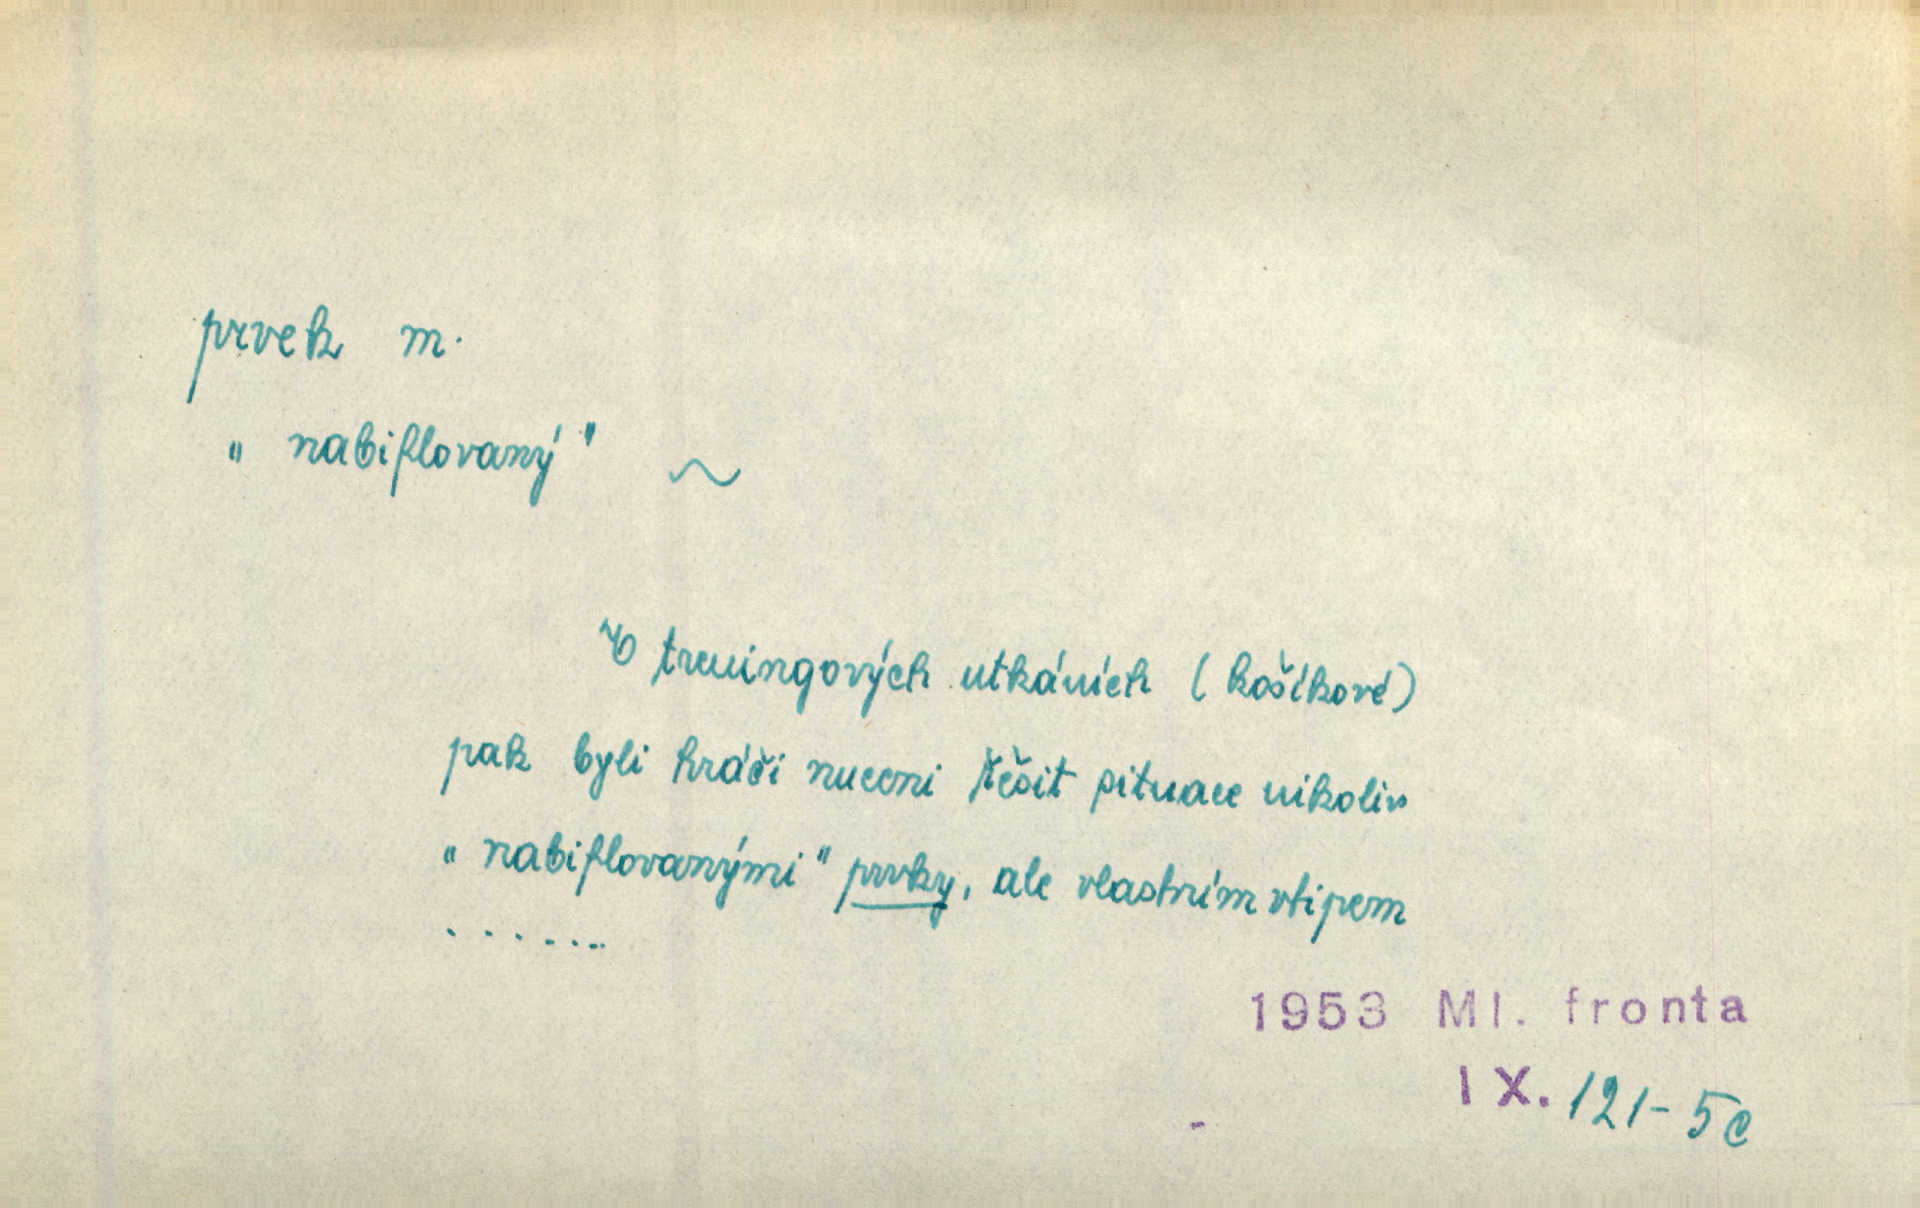 prvek m.
„nabiflovaný" ~
V treningových utkáních (košíkové)
pak byli hráči nuceni řešit situace nikoliv
„nabiflovanými" prvky, ale vlastním vtipem
.......
1953 Ml. fronta
IX. 121-5c